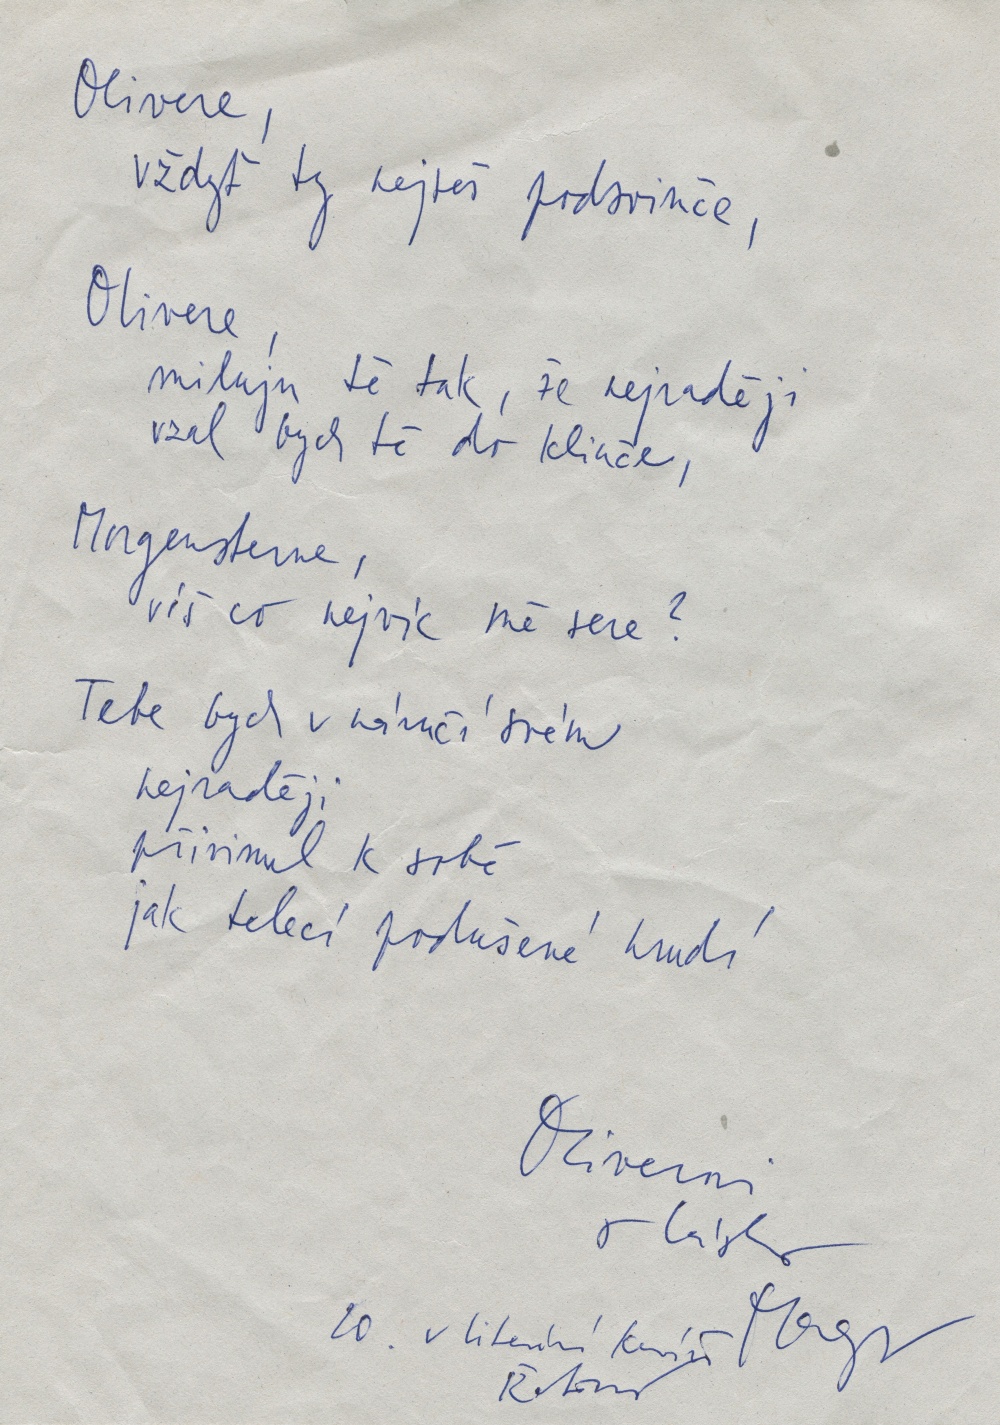 Olivere,
vždyť ty nejseš podsvinče,
Olivere,
miluju tě tak, že nejraději
vzal bych tě do klinče,
Morgensterne,
víš co nejvíc mě sere?
Tebe bych v náručí svém
nejraději
přivinul k sobě
jak telecí podušené hrudí
Oliverovi
s láskou
20. v literární kavárně